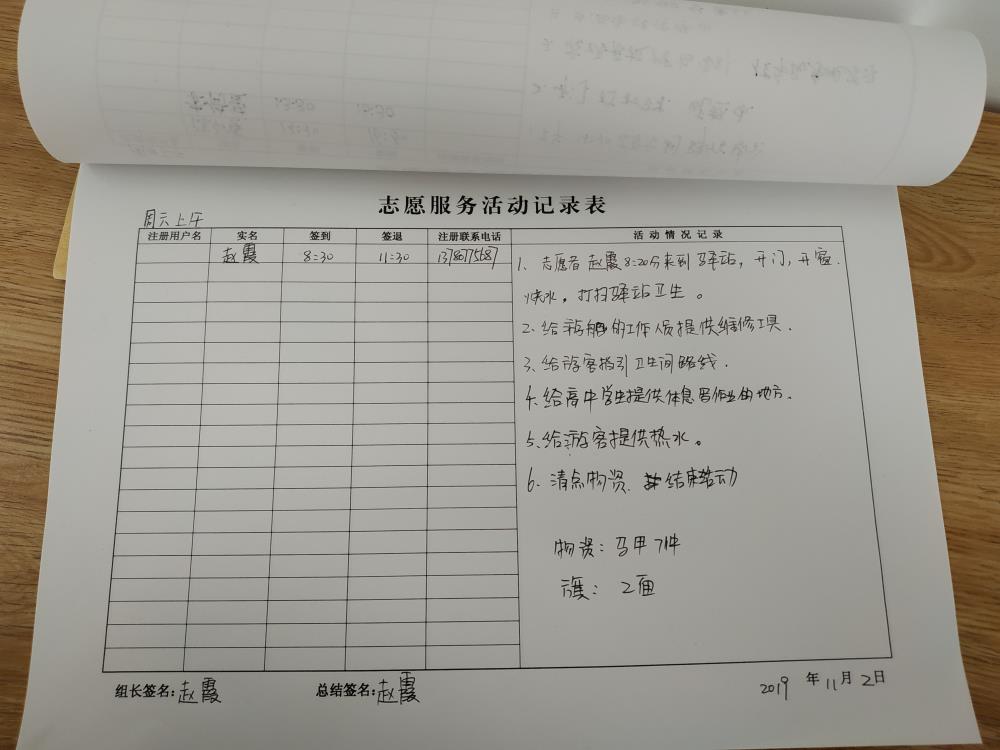 志愿服务活动记录表
周六上午
注册用户名 实名 签到 签退 注册联系电话 活动情况记录
赵霞 8:30 11:30
1、志愿者赵霞8:20分来到驿站，开门，开窗.
烧水，打扫驿站卫生。
2、给游船的工作人员提供维修工具.
3、给游客指引卫生间路线.
4、给高中学生提供休息写作业的地方.
5、给游客提供热水。
6、清点物资、结束活动
物资：马甲7件
旗：2面
组长签名：赵霞 总结签名：赵霞 2019年11月2日